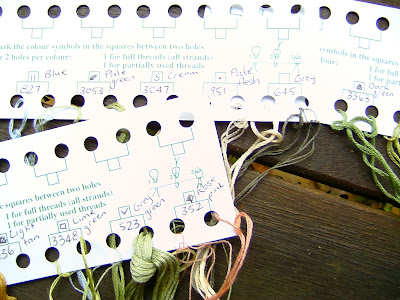 ark the colour symbols in the squares between two holes
1 for full threads (all strands)
r 2 holes per colour:
1 for partially used threads
Blue
Pale green
S Cream
Pale flesh
Grey
827
3053
3047
951
645
symbols in the squares
1 for full
1 for partially
Four:
Dark green
3363
e squares between two holes
1 for full threads (all strands)
1 for partially used threads
Light tan
Lime green
Grey green
Rose pink
36
3348
523
352